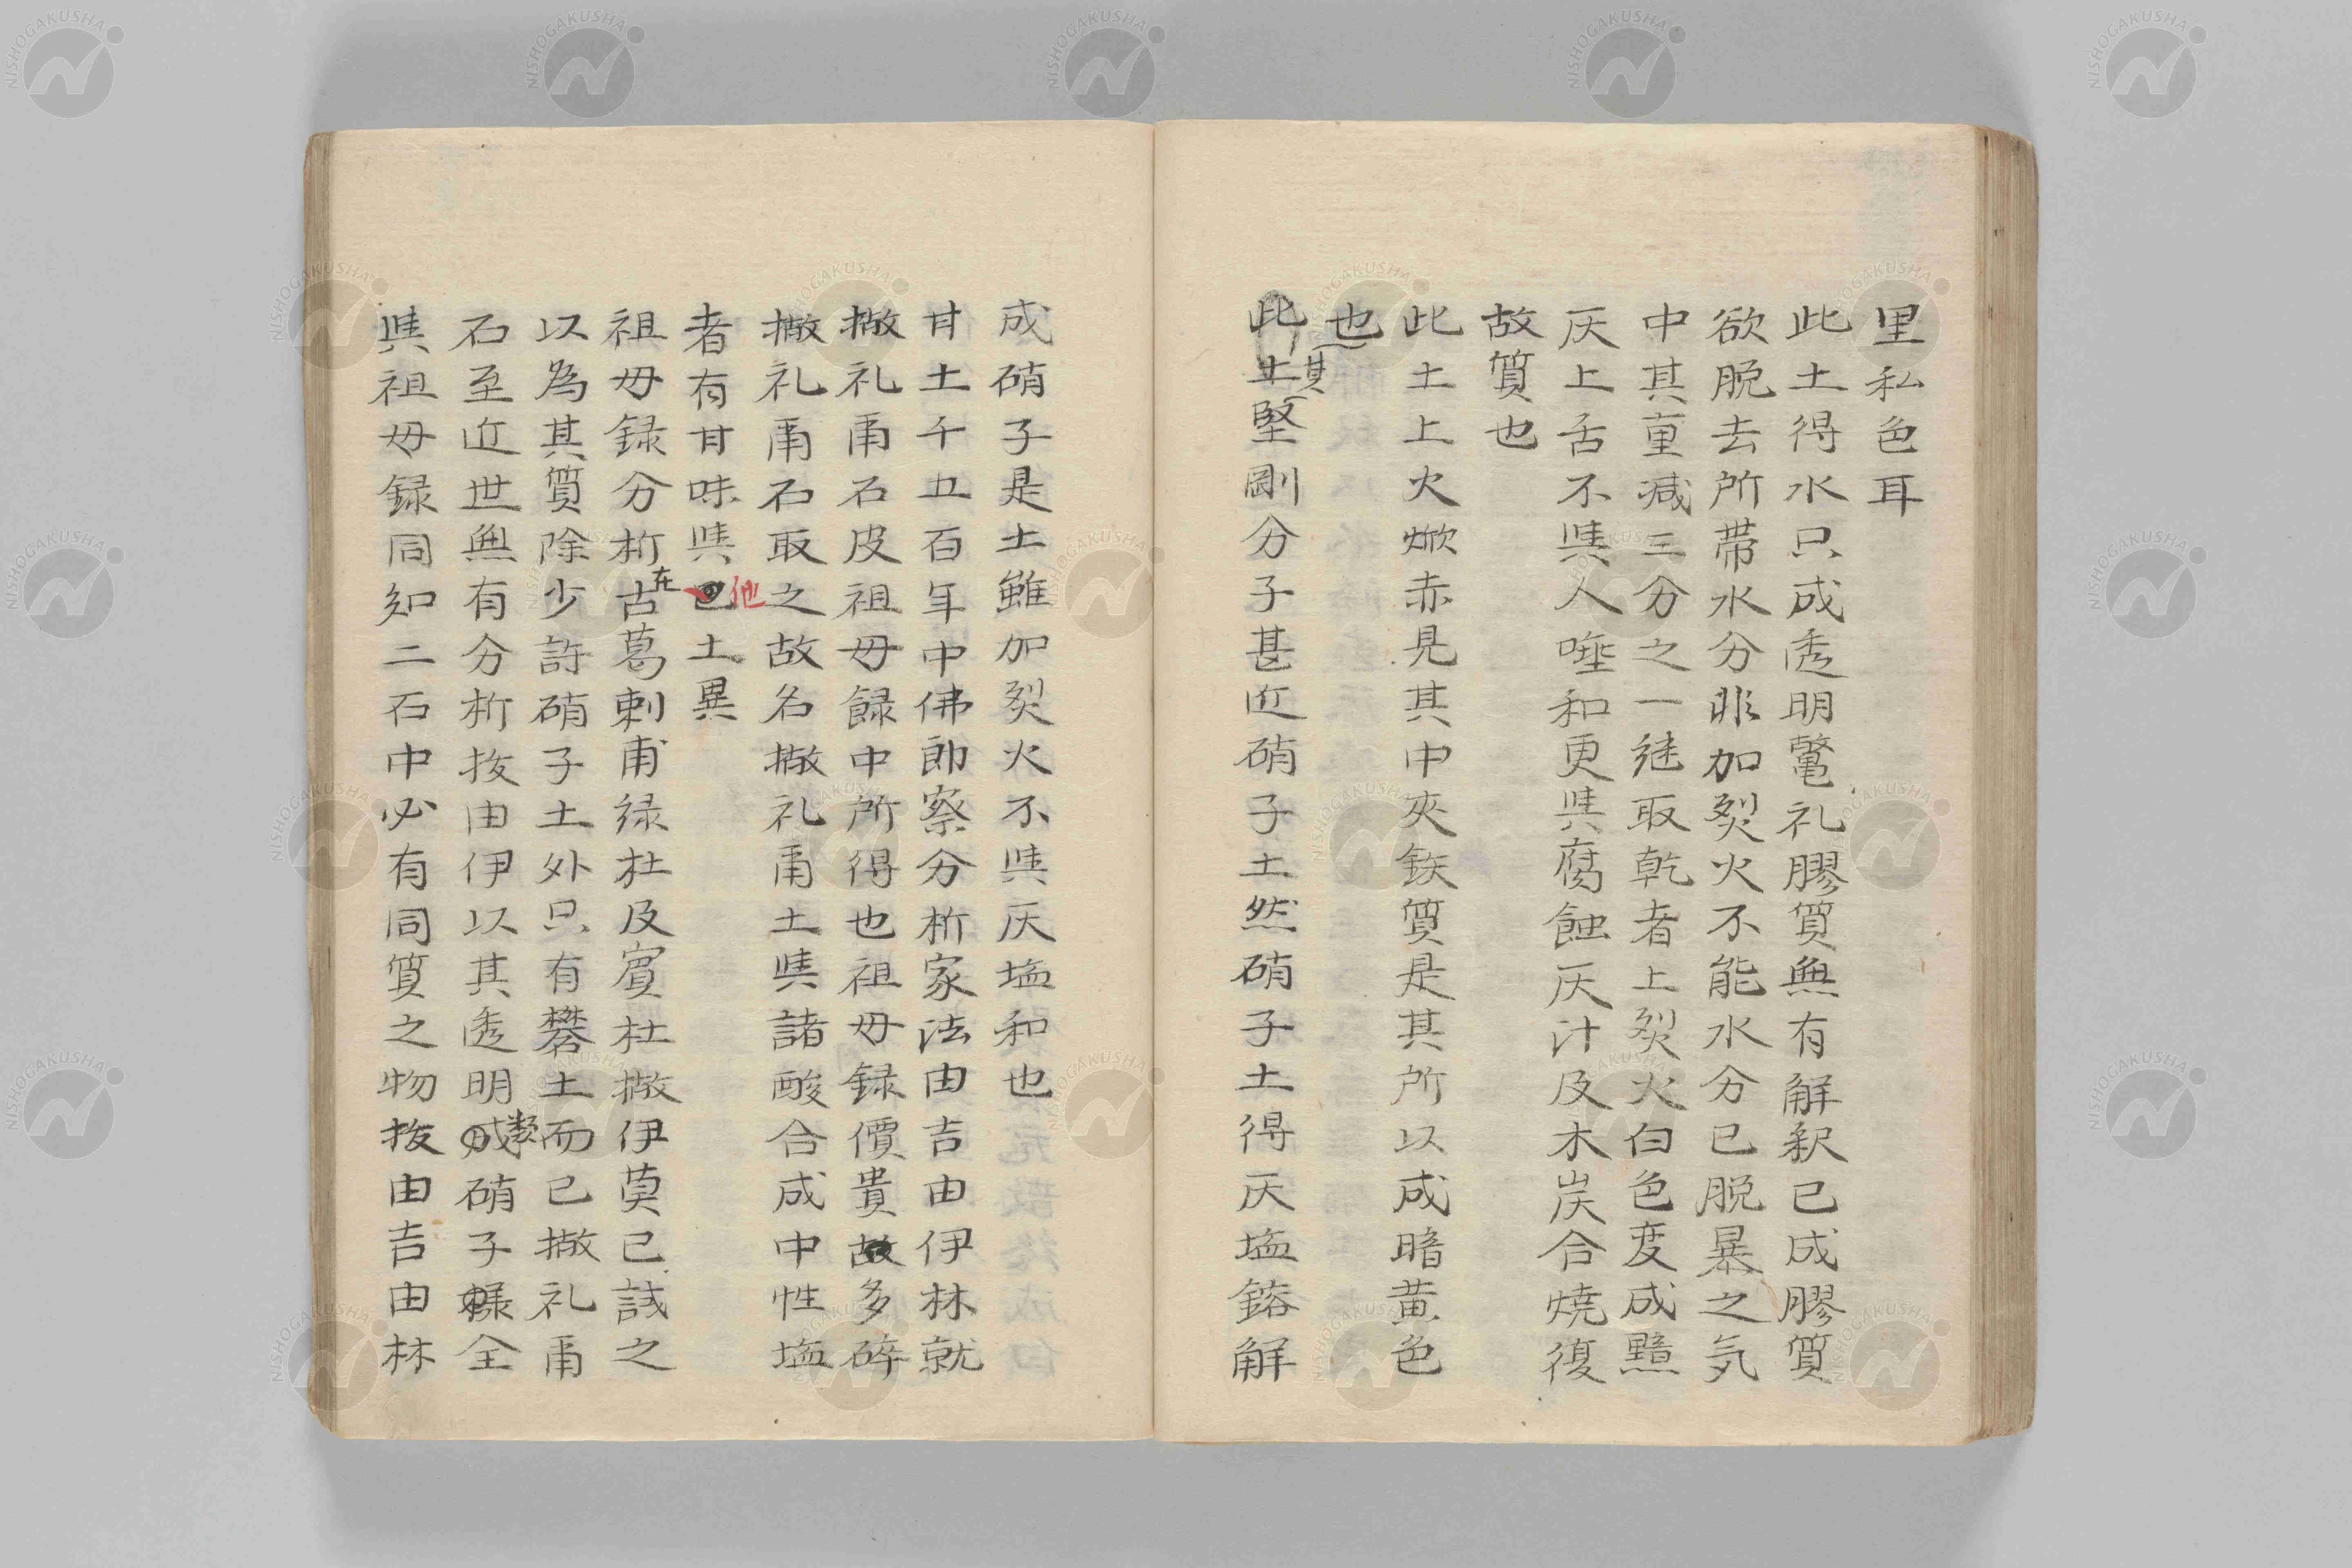 里私色耳
此土得水只成透明鼈礼膠質無有解釈已成膠質
欲脱去所帯水分非加裂火不能水分已脱暴之気
中其重減三分之一継取乾者上裂火白色変成黯
灰上舌不与人唾和更与腐蝕灰汁及木炭合焼復
故質也
此土上火燉赤見其中夾鉄質是其所以成暗黄色
也
此土其堅剛分子甚近硝子土然硝子土得灰塩鎔解
成硝子是土雖加裂火不与灰塩和也
甘土千五百年中佛郎察分析家法由吉由伊林就
撒礼甬石皮祖母録中所得也祖母録價貴故多砕
撒礼甬石取之故名撒礼甬土与諸酸合成中性塩
者有甘味与他土異
祖母録分析在古葛剌甫緑杜及賓杜撒伊莫已試之
以為其質除少許硝子土外只有礬土而已撒礼甬
石至近世無有分析抜由伊以其透明成類硝子様全
与祖母録同知二石中必有同質之物抜由吉由林
NISHOGAKUSHA